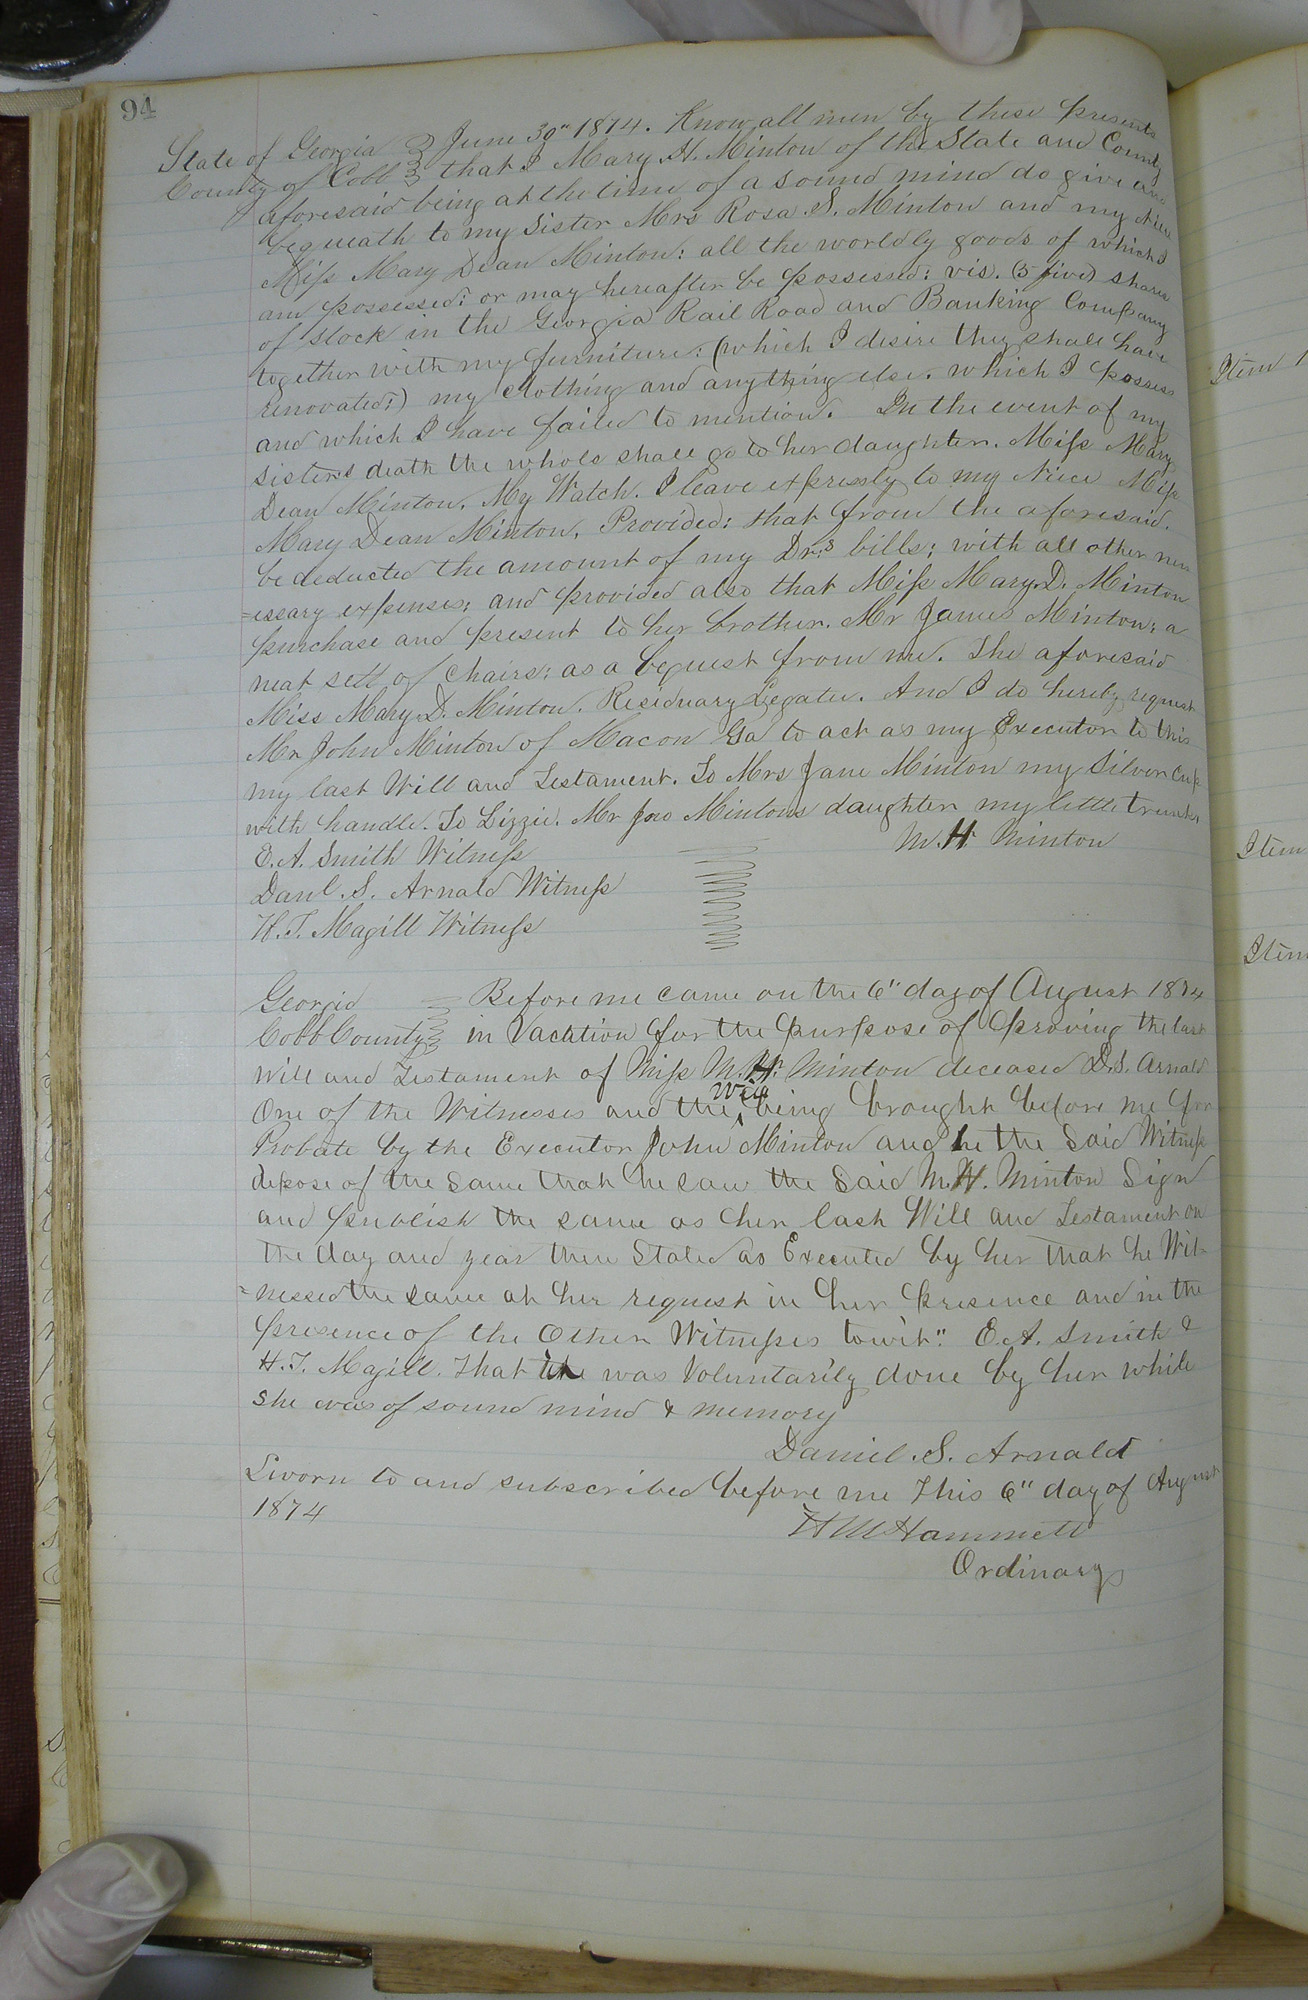 94
State of Georgia } June 30" 1874. Know all men by these presents
County of Cobb } that I Mary H. Minton of the State and County
aforesaid being at the time of a sound mind do give and
bequeath to my Sister Mrs Rosa S. Minton and my Niece
Miss Mary Dean Minton: all the worldly goods of which I
am possessed: or may hereafter be possessed: vis. (5 five) shares
of stock in the Georgia Rail Road and Banking Company
together with my furniture: (which I desire they shall have
renovated:) my clothing and anything else. which I possess
and which I have failed to mention. In the event of my
sisters death the whole shall go to her daughter. Miss Mary
Dean Minton. My Watch. I leave expressly to my Niece Miss
Mary Dean Minton. Provided: that from the aforesaid.
be deducted the amount of my Dr.s bills; with all other nec
=essary expenses; and provided also that Miss Mary D. Minton
purchase and present to her brother. Mr James Minton; a
neat sett of Chairs; as a bequest from me. The aforesaid
Miss Mary D. Minton. Residuary Legatee. And I do hereby request
Mr John Minton of Macon Ga to act as my Executor to this
my last Will and Testament. To Mrs Jane Minton my Silver Cup
with handle. To Lizzie. Mr Jno Mintons daughter my little trunk
M. H. Minton
E. A. Smith Witness
Danl. S. Arnald Witness
H. T. Magill Witness
Georgia } Before me came on the 6" day of August 1874
Cobb County } in Vacation for the purpose of proving the last
Will and Testament of Miss M. H. Minton deceased D. S. Arnald
One of the Witnesses and the Will being brought before me for
Probate by the Executor John Minton and he the said Witness
depose of the same that he saw the said M. H. Minton Sign
and publish the same as her last Will and Testament on
the day and year then Stated as Executed by her that he Wit-
=nessed the same at her request in her presence and in the
presence of the Other Witnesses towit" E. A. Smith &
H. T. Magill. That it was Voluntarily done by her while
she was of sound mind & memory
Daniel. S. Arnald
Sworn to and subscribed before me this 6" day of August
1874
H M Hammett
Ordinary
Item 1
Item
Item